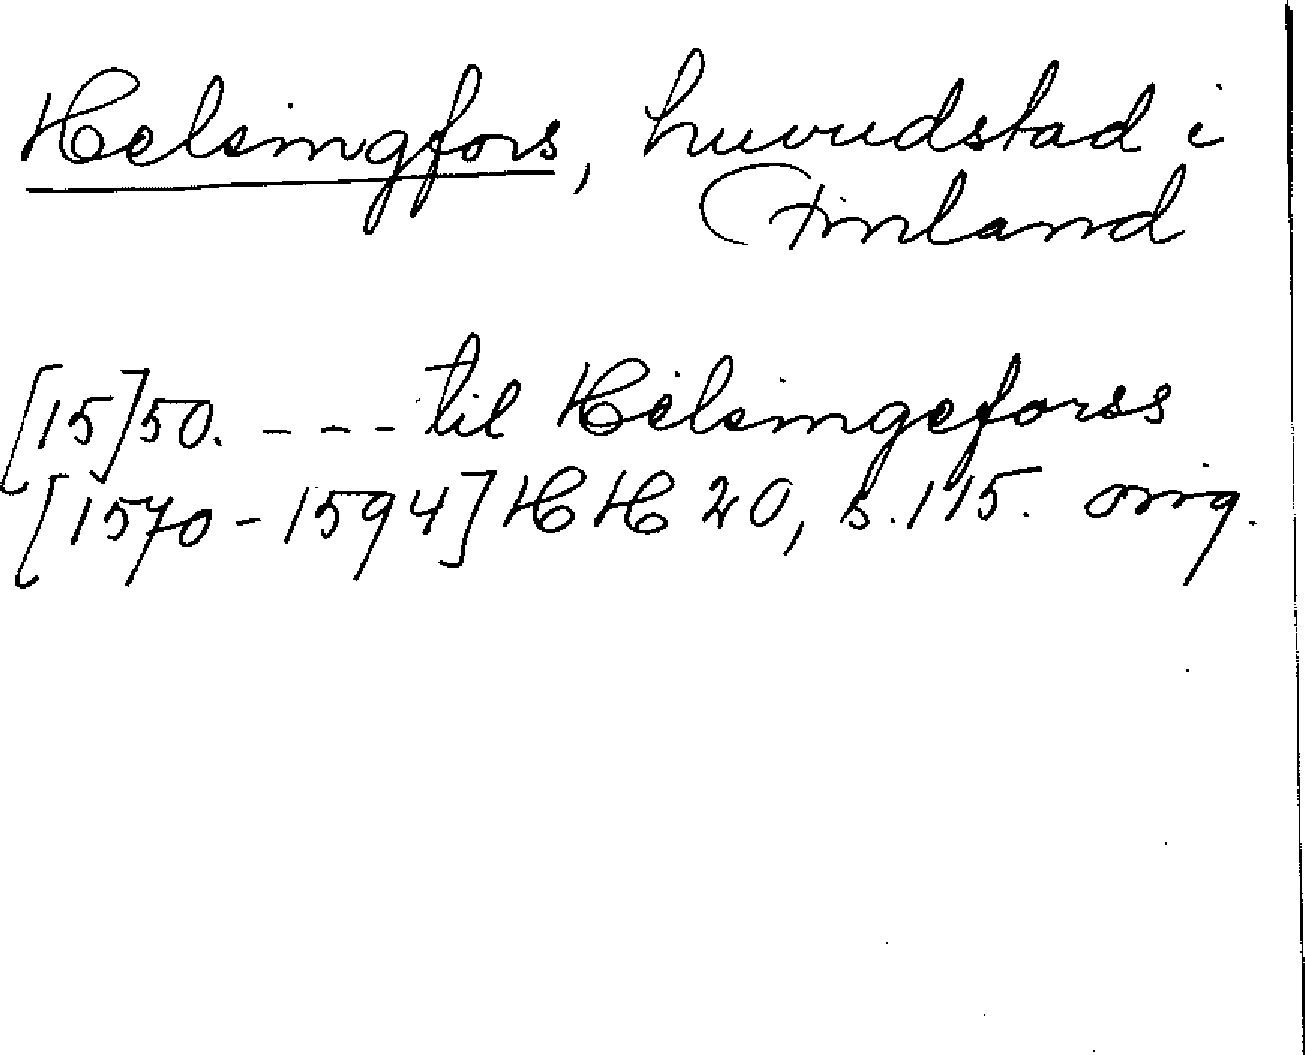 Helsingfors, huvudstad i
Finland
[15]50. - - - til Helsingeforss
[1570-1594] HH 20, s. 115. orig.